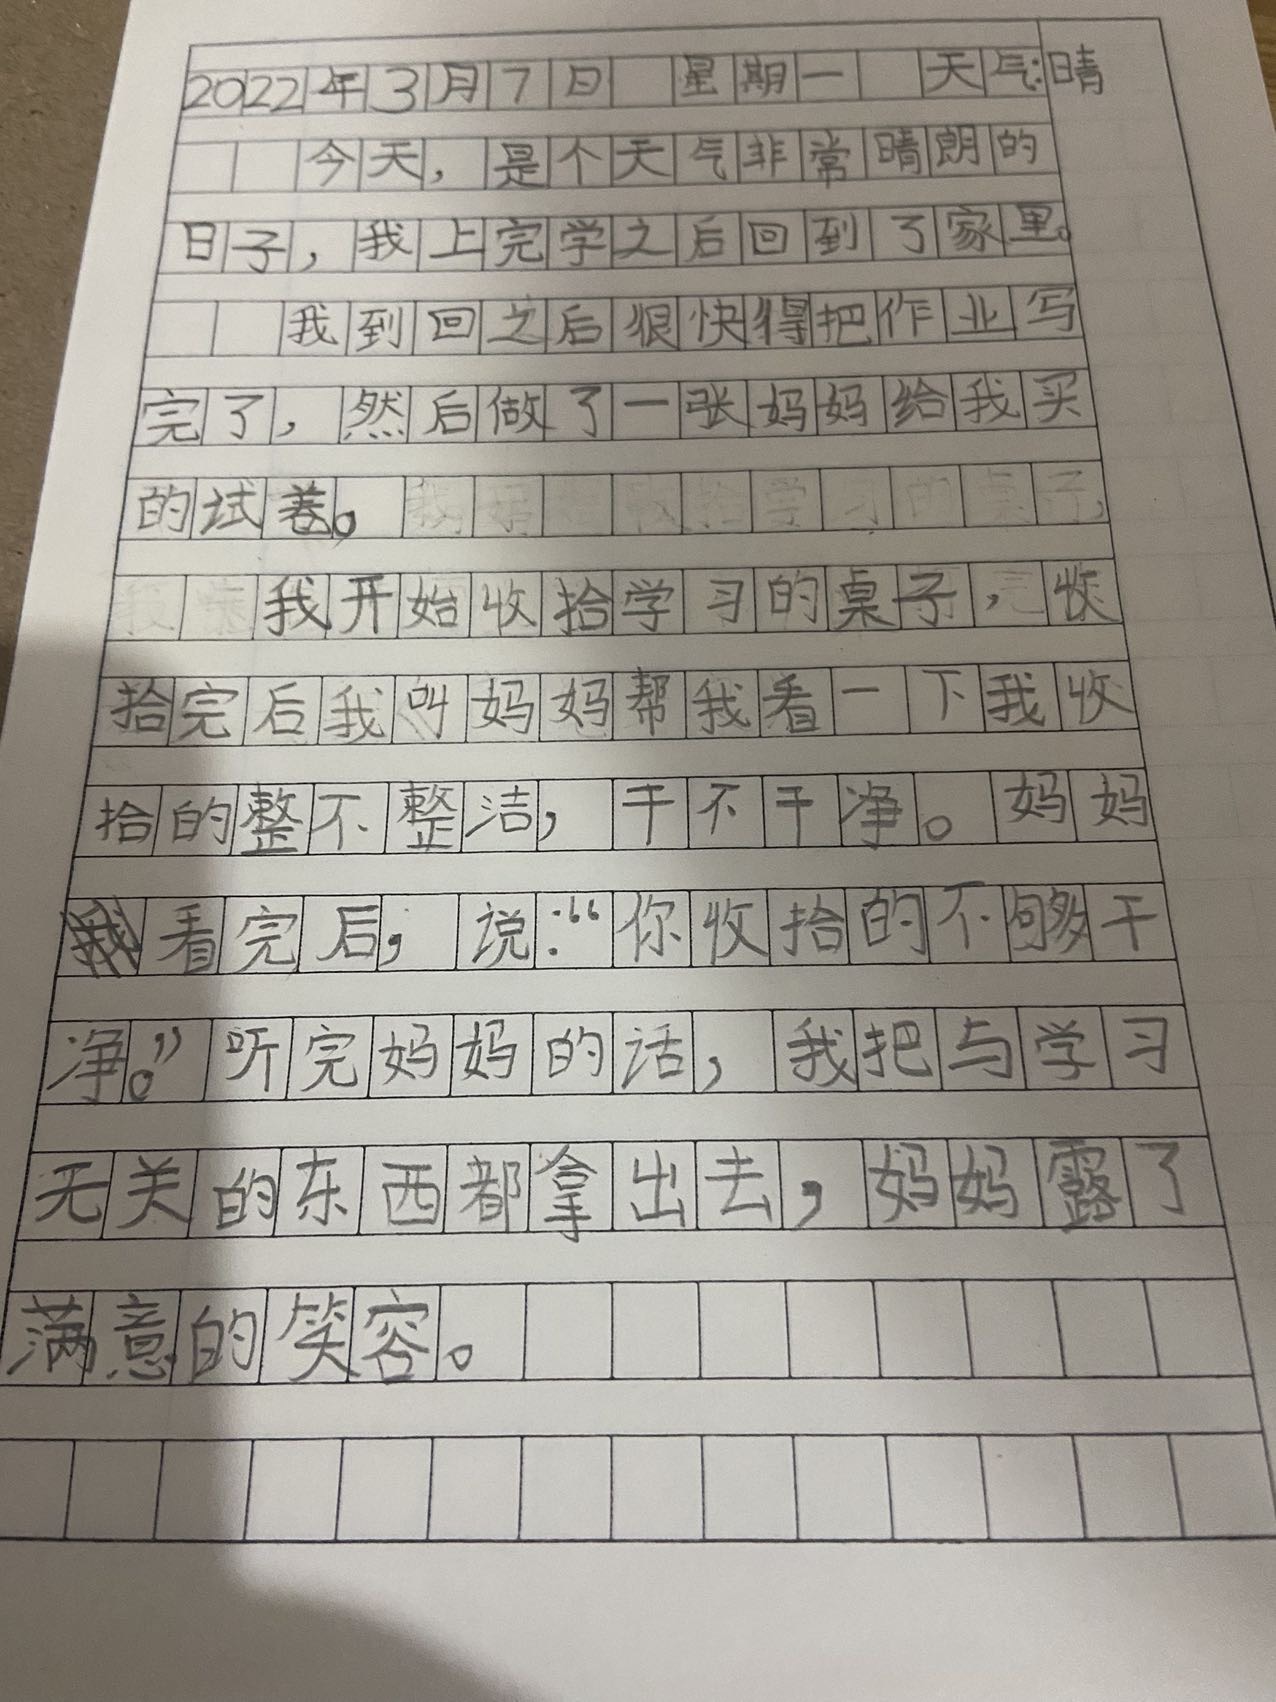 2022年3月7日 星期一 天气:晴
今天，是个天气非常晴朗的
日子，我上完学之后回到了家里。
我到回之后很快得把作业写
完了，然后做了一张妈妈给我买
的试卷。
我开始收拾学习的桌子，收
拾完后我叫妈妈帮我看一下我收
拾的整不整洁，干不干净。妈妈
看完后，说：“你收拾的不够干
净。”听完妈妈的话，我把与学习
无关的东西都拿出去，妈妈露了
满意的笑容。